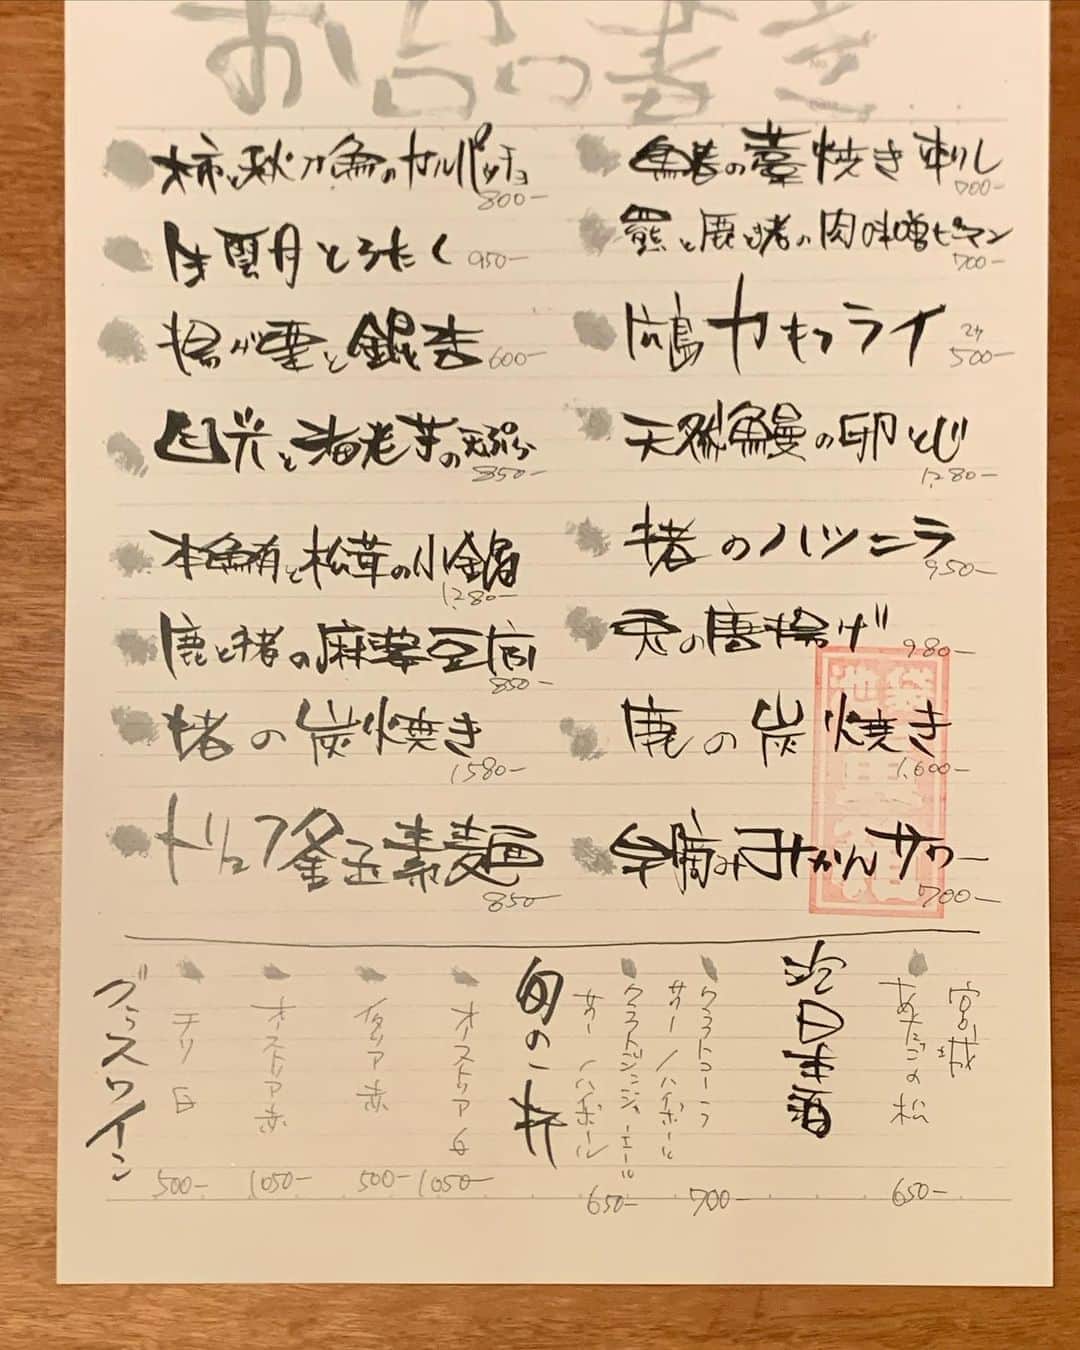 お品書き
柿と秋刀魚のカルパッチョ
800-
生雲丹とろたく
950-
揚げ栗と銀杏
600-
目光と海老芋の天ぷら
850-
本鮪と松茸の小鍋
1,280-
鹿と猪の麻婆豆腐
850-
猪の炭焼き
1,580-
トリュフ釜玉素麺
850-
の藁焼き刺し
700-
羆と鹿と猪の肉味噌ピーマン
700-
広島カキフライ
2ヶ
500-
天然鰻の卵とじ
1,280-
猪のハツニラ
950-
兎の唐揚げ
980-
鹿の炭焼き
1,600-
早摘みみかんサワー
700-
池袋
冷日本酒
宮城
あたごの松
650-
旬の一杯
クラフトコーラ
サワー/ハイボール
700-
クラフトジンジャーエール
サワー/ハイボール
650-
グラスワイン
オーストリア 白
1050-
イタリア 赤
500-
オーストリア 赤
1050-
チリ 白
500-